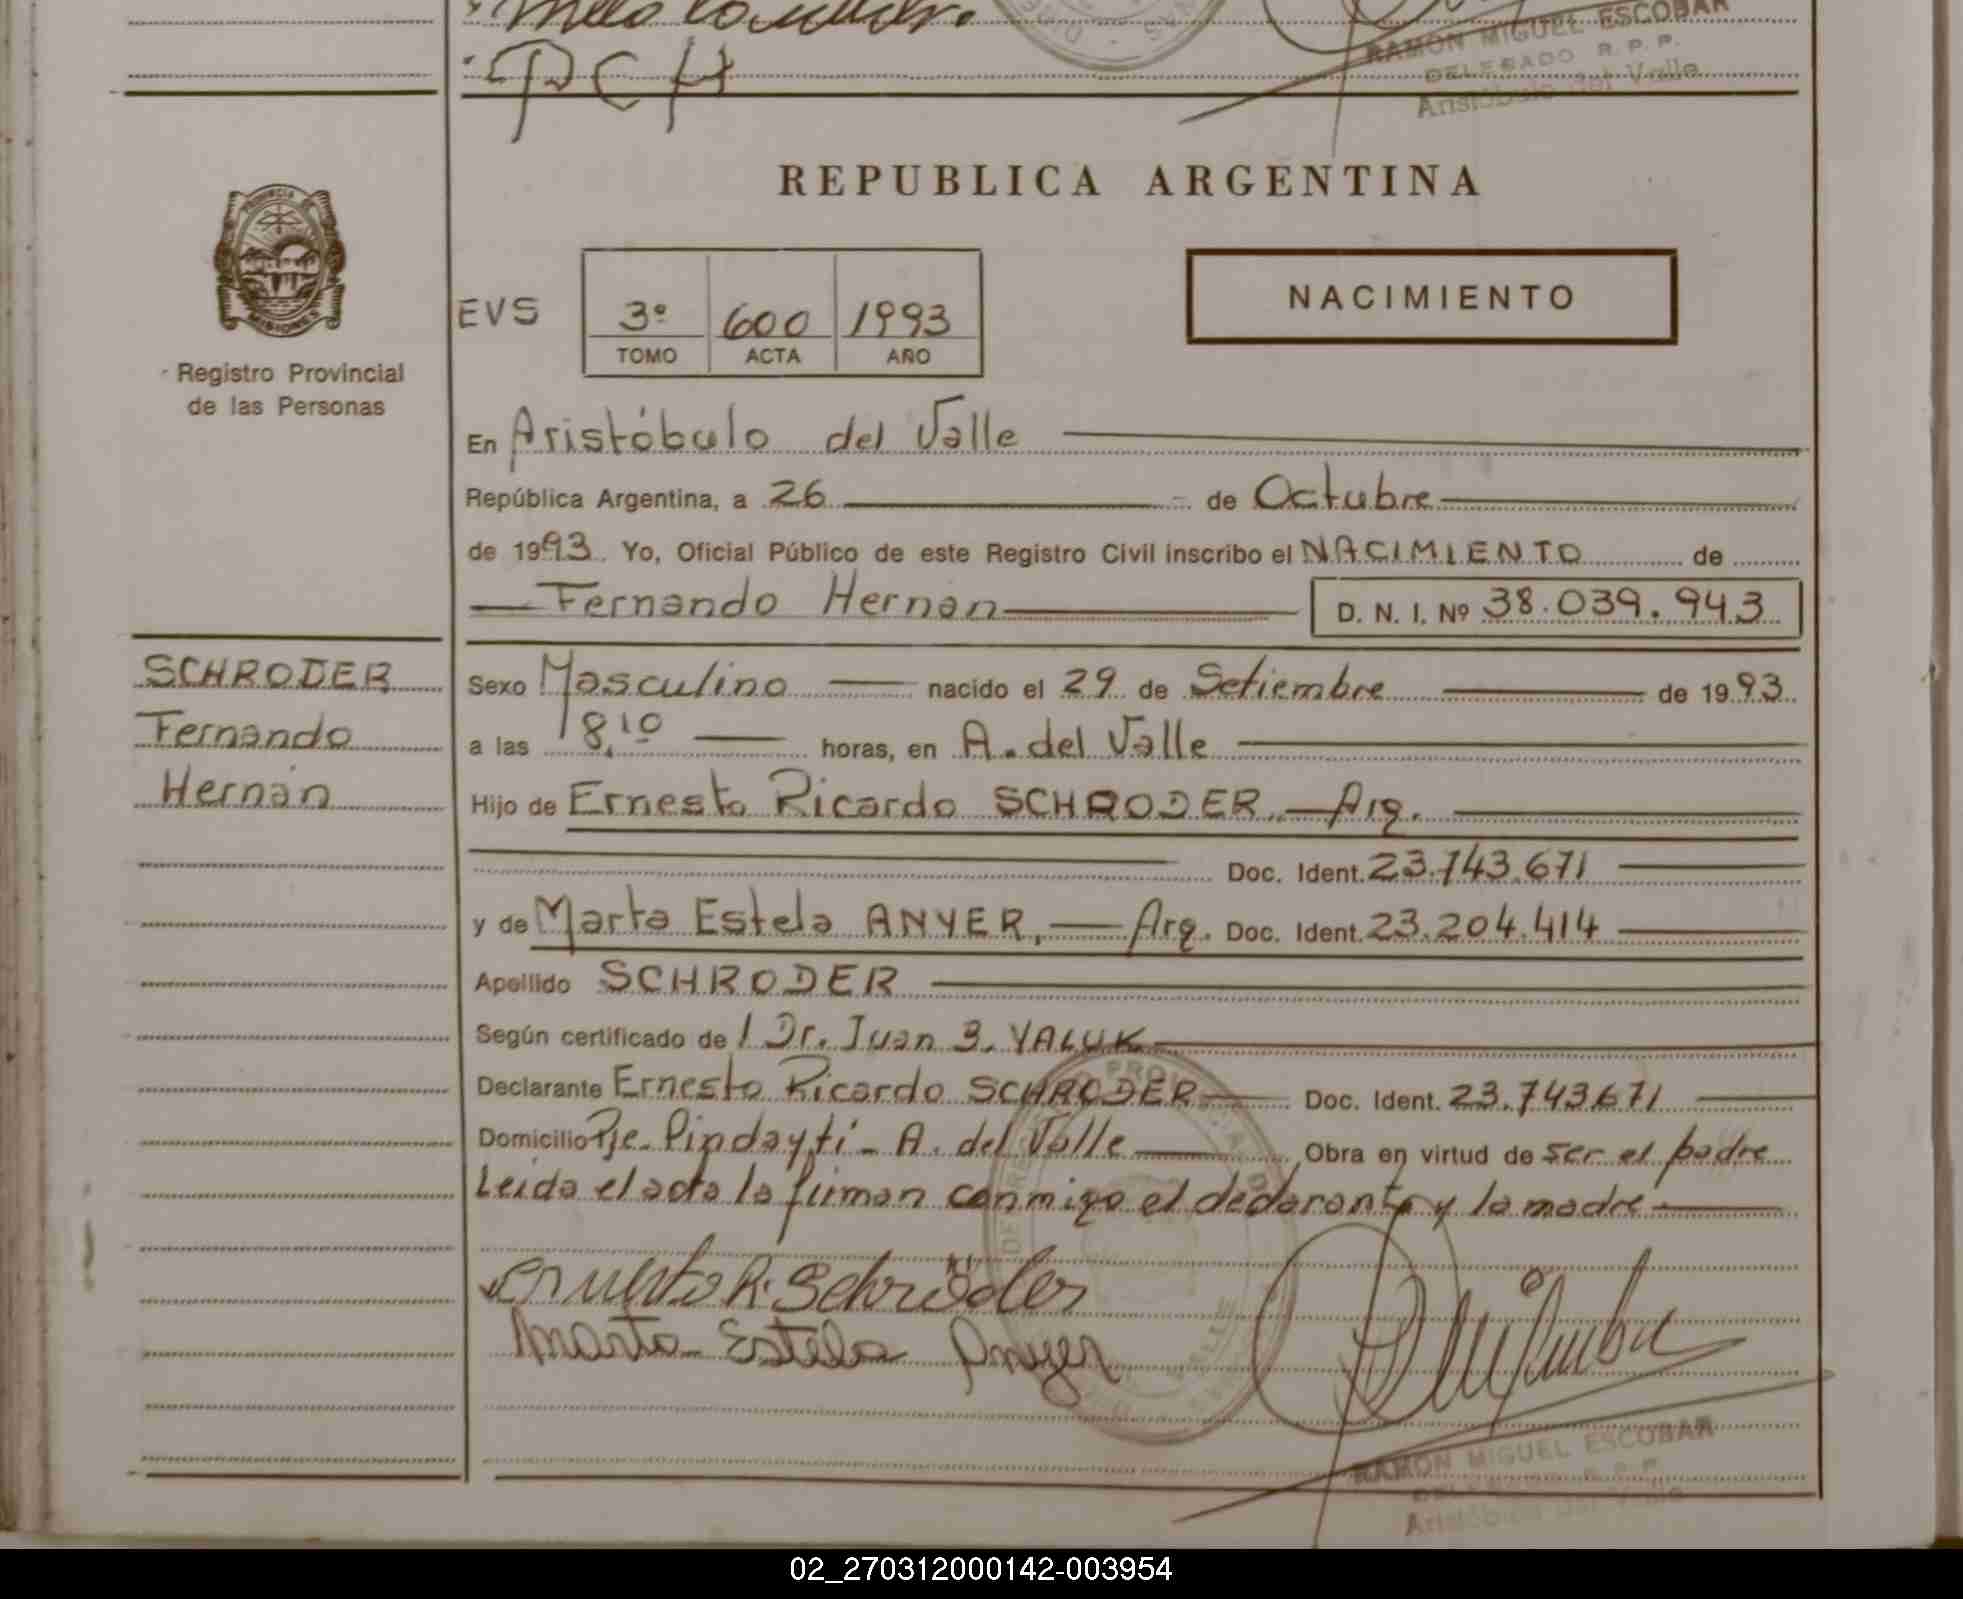 RAMON MIGUEL ESCOBAR
DELEGADO R. P. P.
Aristóbulo del Valle
REPUBLICA ARGENTINA
PROVINCIA DE
MISIONES
Registro Provincial
de las Personas
NACIMIENTO
EVS 3º 600 1993
TOMO ACTA AÑO
En Aristóbulo del Valle
República Argentina, a 26 de Octubre
de 1993. Yo, Oficial Público de este Registro Civil inscribo el NACIMIENTO de
Fernando Hernan D. N. I. Nº 38.039.943
SCHRODER
Fernando
Hernán
Sexo Masculino nacido el 29 de Setiembre de 1993
a las 18,10 horas, en A. del Valle
Hijo de Ernesto Ricardo SCHRODER, Arg.
Doc. Ident. 23.743.671
y de Marta Estela ANYER, Arg. Doc. Ident. 23.204.414
Apellido SCHRODER
Según certificado de l Dr. Juan B. YALUK
Declarante Ernesto Ricardo SCHRODER Doc. Ident. 23.743671
Domicilio Pje. Pindaytí - A. del Valle Obra en virtud de ser el padre
Leída el acta la firman conmigo el declarante y la madre
Ernesto R. Schröder
Marta Estela Anyer
RAMON MIGUEL ESCOBAR
DELEGADO R. P. P.
Aristóbulo del Valle
02_270312000142-003954